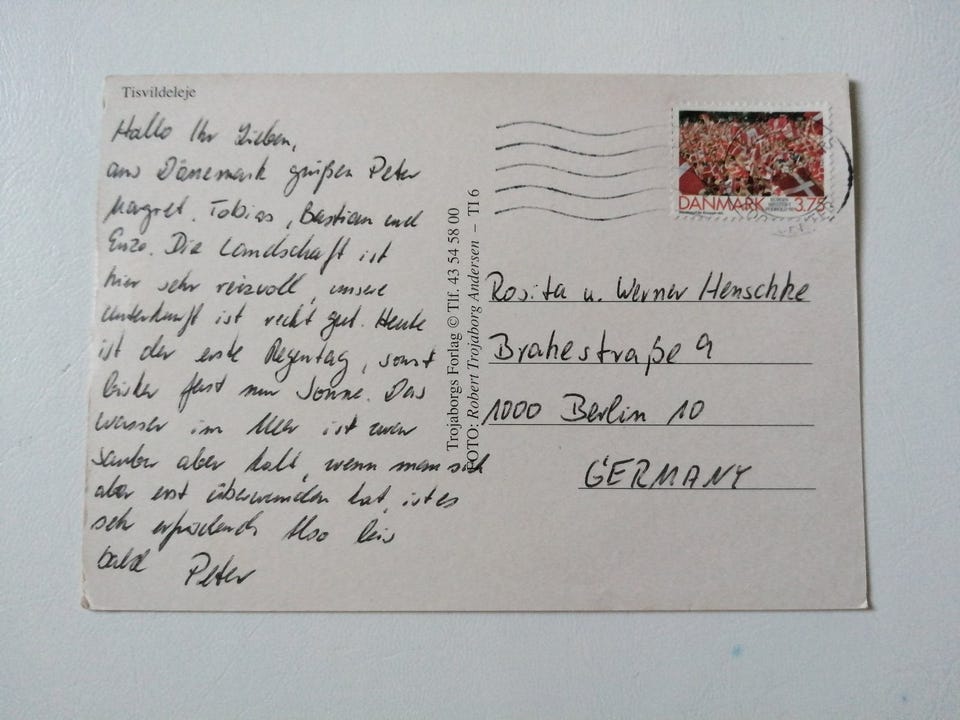 Tisvildeleje
Hallo Ihr Lieben,
aus Dänemark grüßen Peter
Margret, Tobias, Bastian und
Enzo. Die Landschaft ist
hier sehr reizvoll, unsere
Unterkunft ist recht gut. Heute
ist der erste Regentag, sonst
bisher fast nur Sonne. Das
Wasser im Meer ist zwar
sauber aber kalt, wenn man sich
aber erst überwunden hat, ist es
sehr erfrischend. Also bis
bald Peter
Trojaborgs Forlag © Tlf. 43 54 58 00
FOTO: Robert Trojaborg Andersen – TI 6
DANMARK 3.75
Rosita u. Werner Henschke
Brahestraße 9
1000 Berlin 10
GERMANY